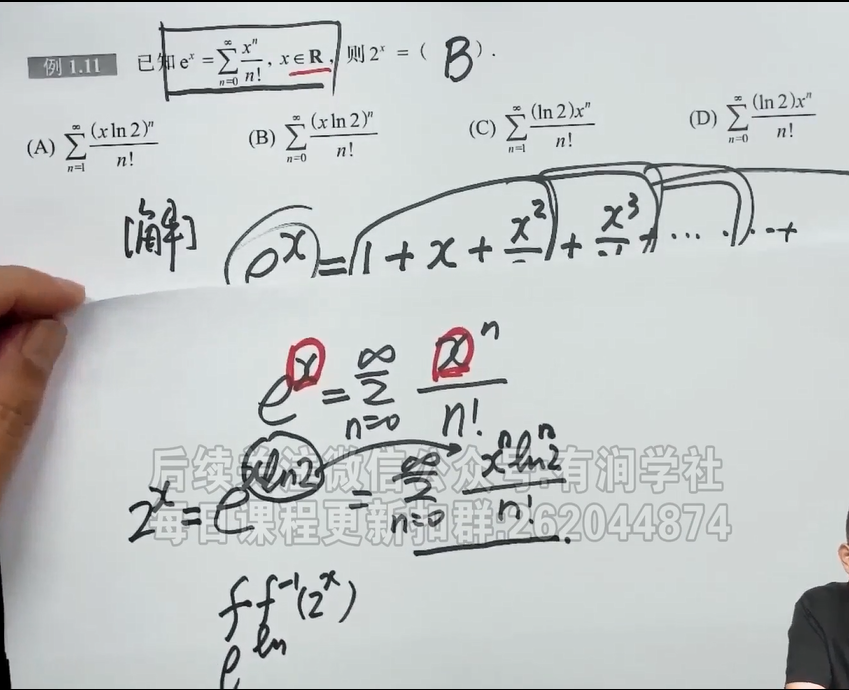 例 1.11 已知 eˣ = ∑_{n=0}^{∞} xⁿ/n!, x∈R, 则 2ˣ = ( B ).
(A) ∑_{n=1}^{∞} (x ln 2)ⁿ/n! (B) ∑_{n=0}^{∞} (x ln 2)ⁿ/n! (C) ∑_{n=1}^{∞} (ln 2)xⁿ/n! (D) ∑_{n=0}^{∞} (ln 2)xⁿ/n!
[解] eˣ = 1 + x + x²/ + x³/ + ... +
eˣ = ∑_{n=0}^{∞} xⁿ/n!
2ˣ = e^{xln2} = ∑_{n=0}^{∞} xⁿlnⁿ2/n!
后续关注微信公众号:有润学社
每日课程更新扣群:262044874
f f⁻¹(2ˣ)
e ln